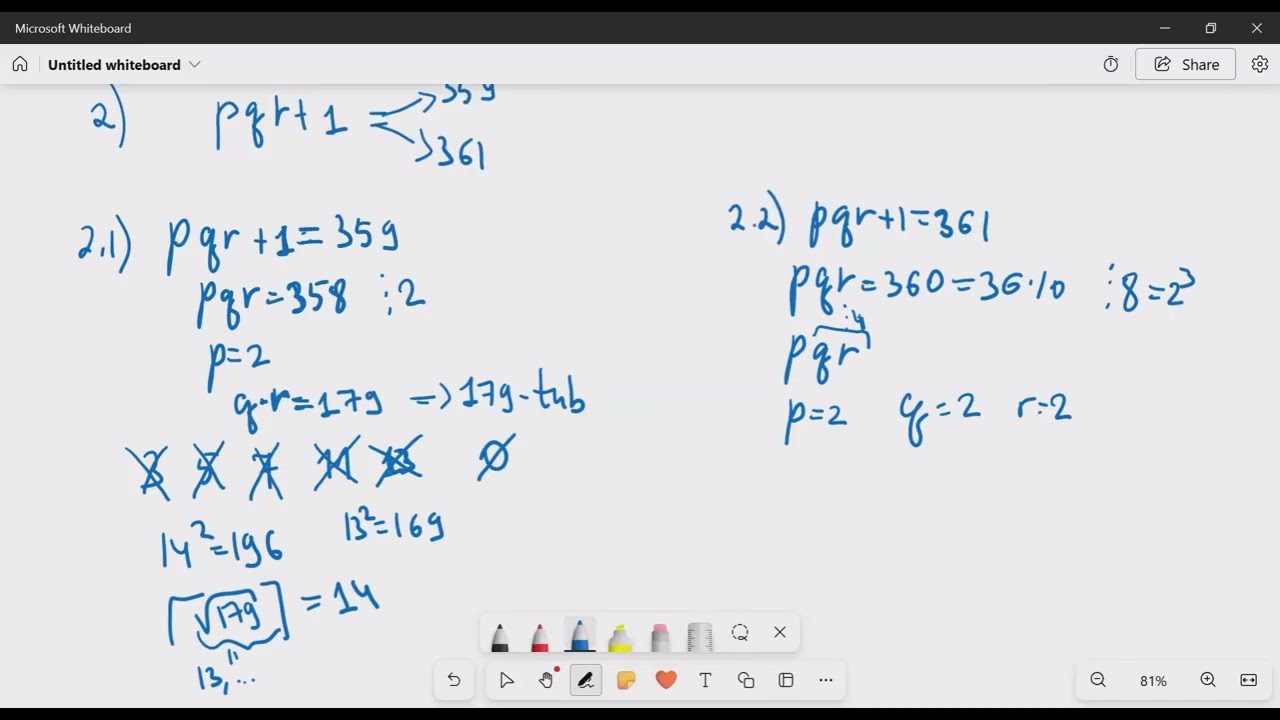 Microsoft Whiteboard
Untitled whiteboard
Share
2) pqr+1 = > 359
> 361
2.1) pqr+1=359
pqr=358 ⋮2
p=2
q·r=179 => 179-tub
3 5 7 11 13 ∅
14²=196 13²=169
⌈√179⌉ = 14
13,...
2.2) pqr+1=361
pqr=360=36·10 ⋮8=2³
⋮4
pqr
p=2 q=2 r=2
T
81%